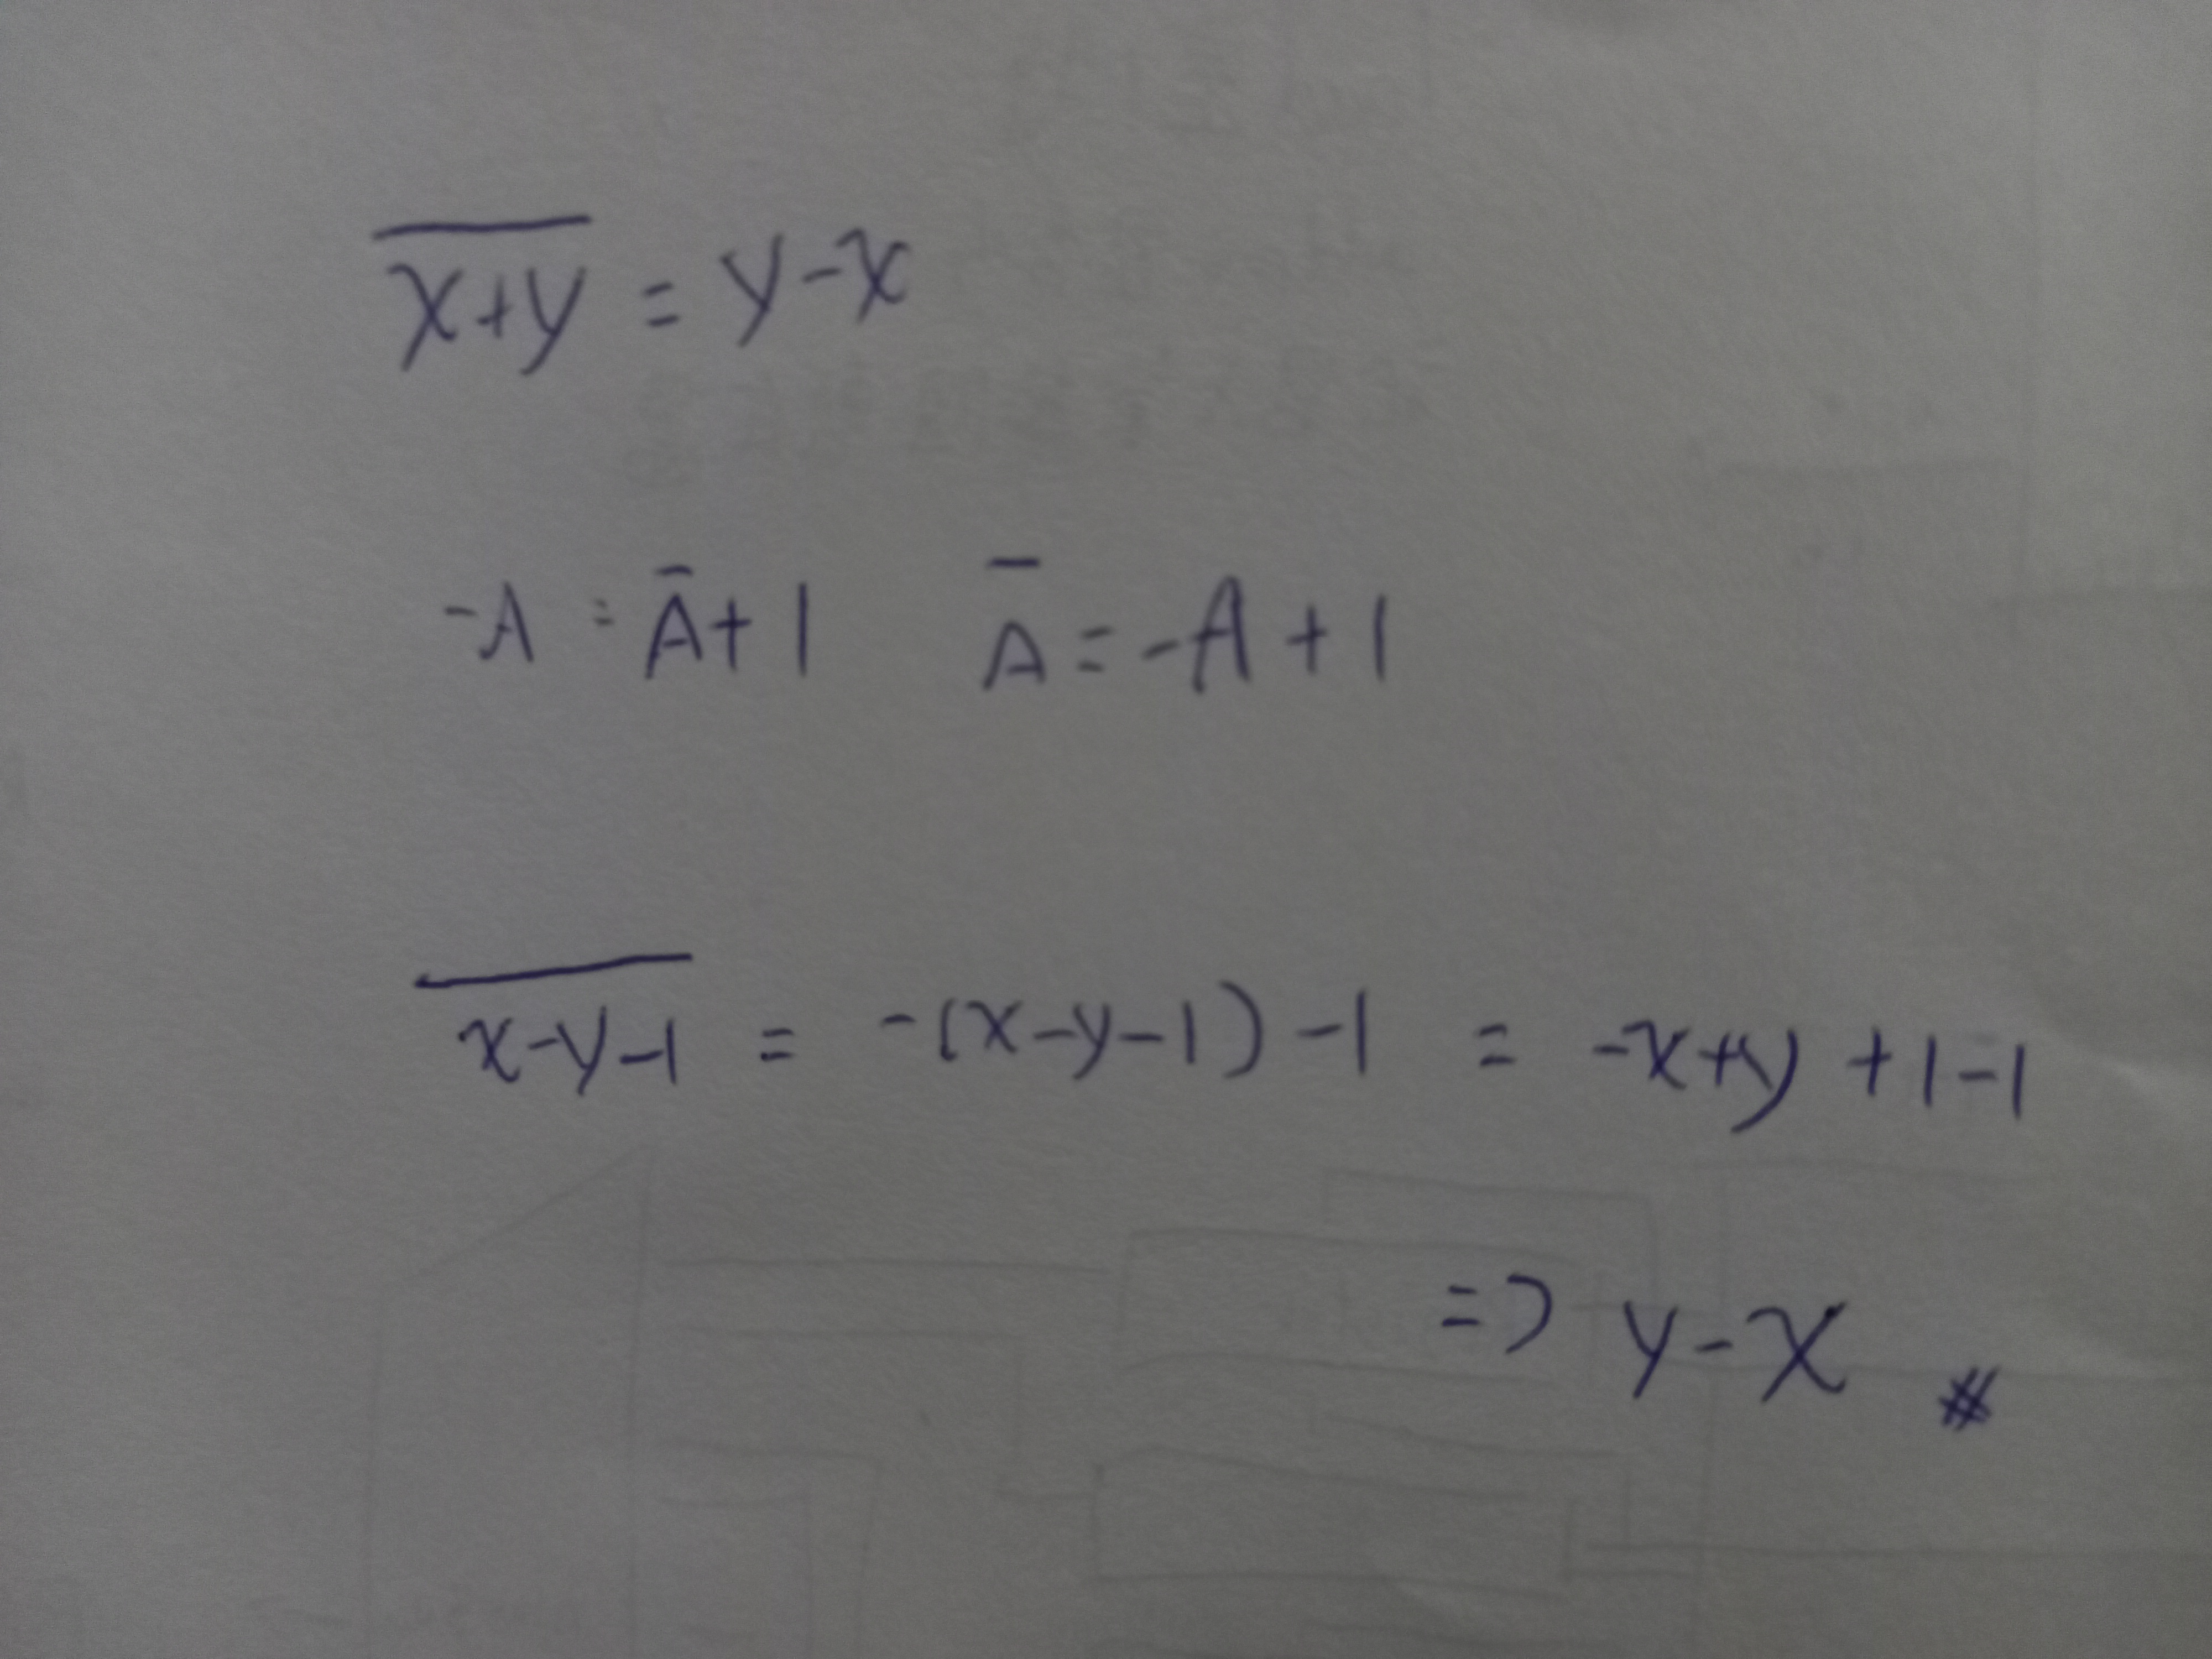 x̅+̅y̅ = y-x
-A = A̅+1 A̅ = -A+1
x̅-̅y̅-̅1̅ = -(x-y-1)-1 = -x+y+1-1
=> y-x #